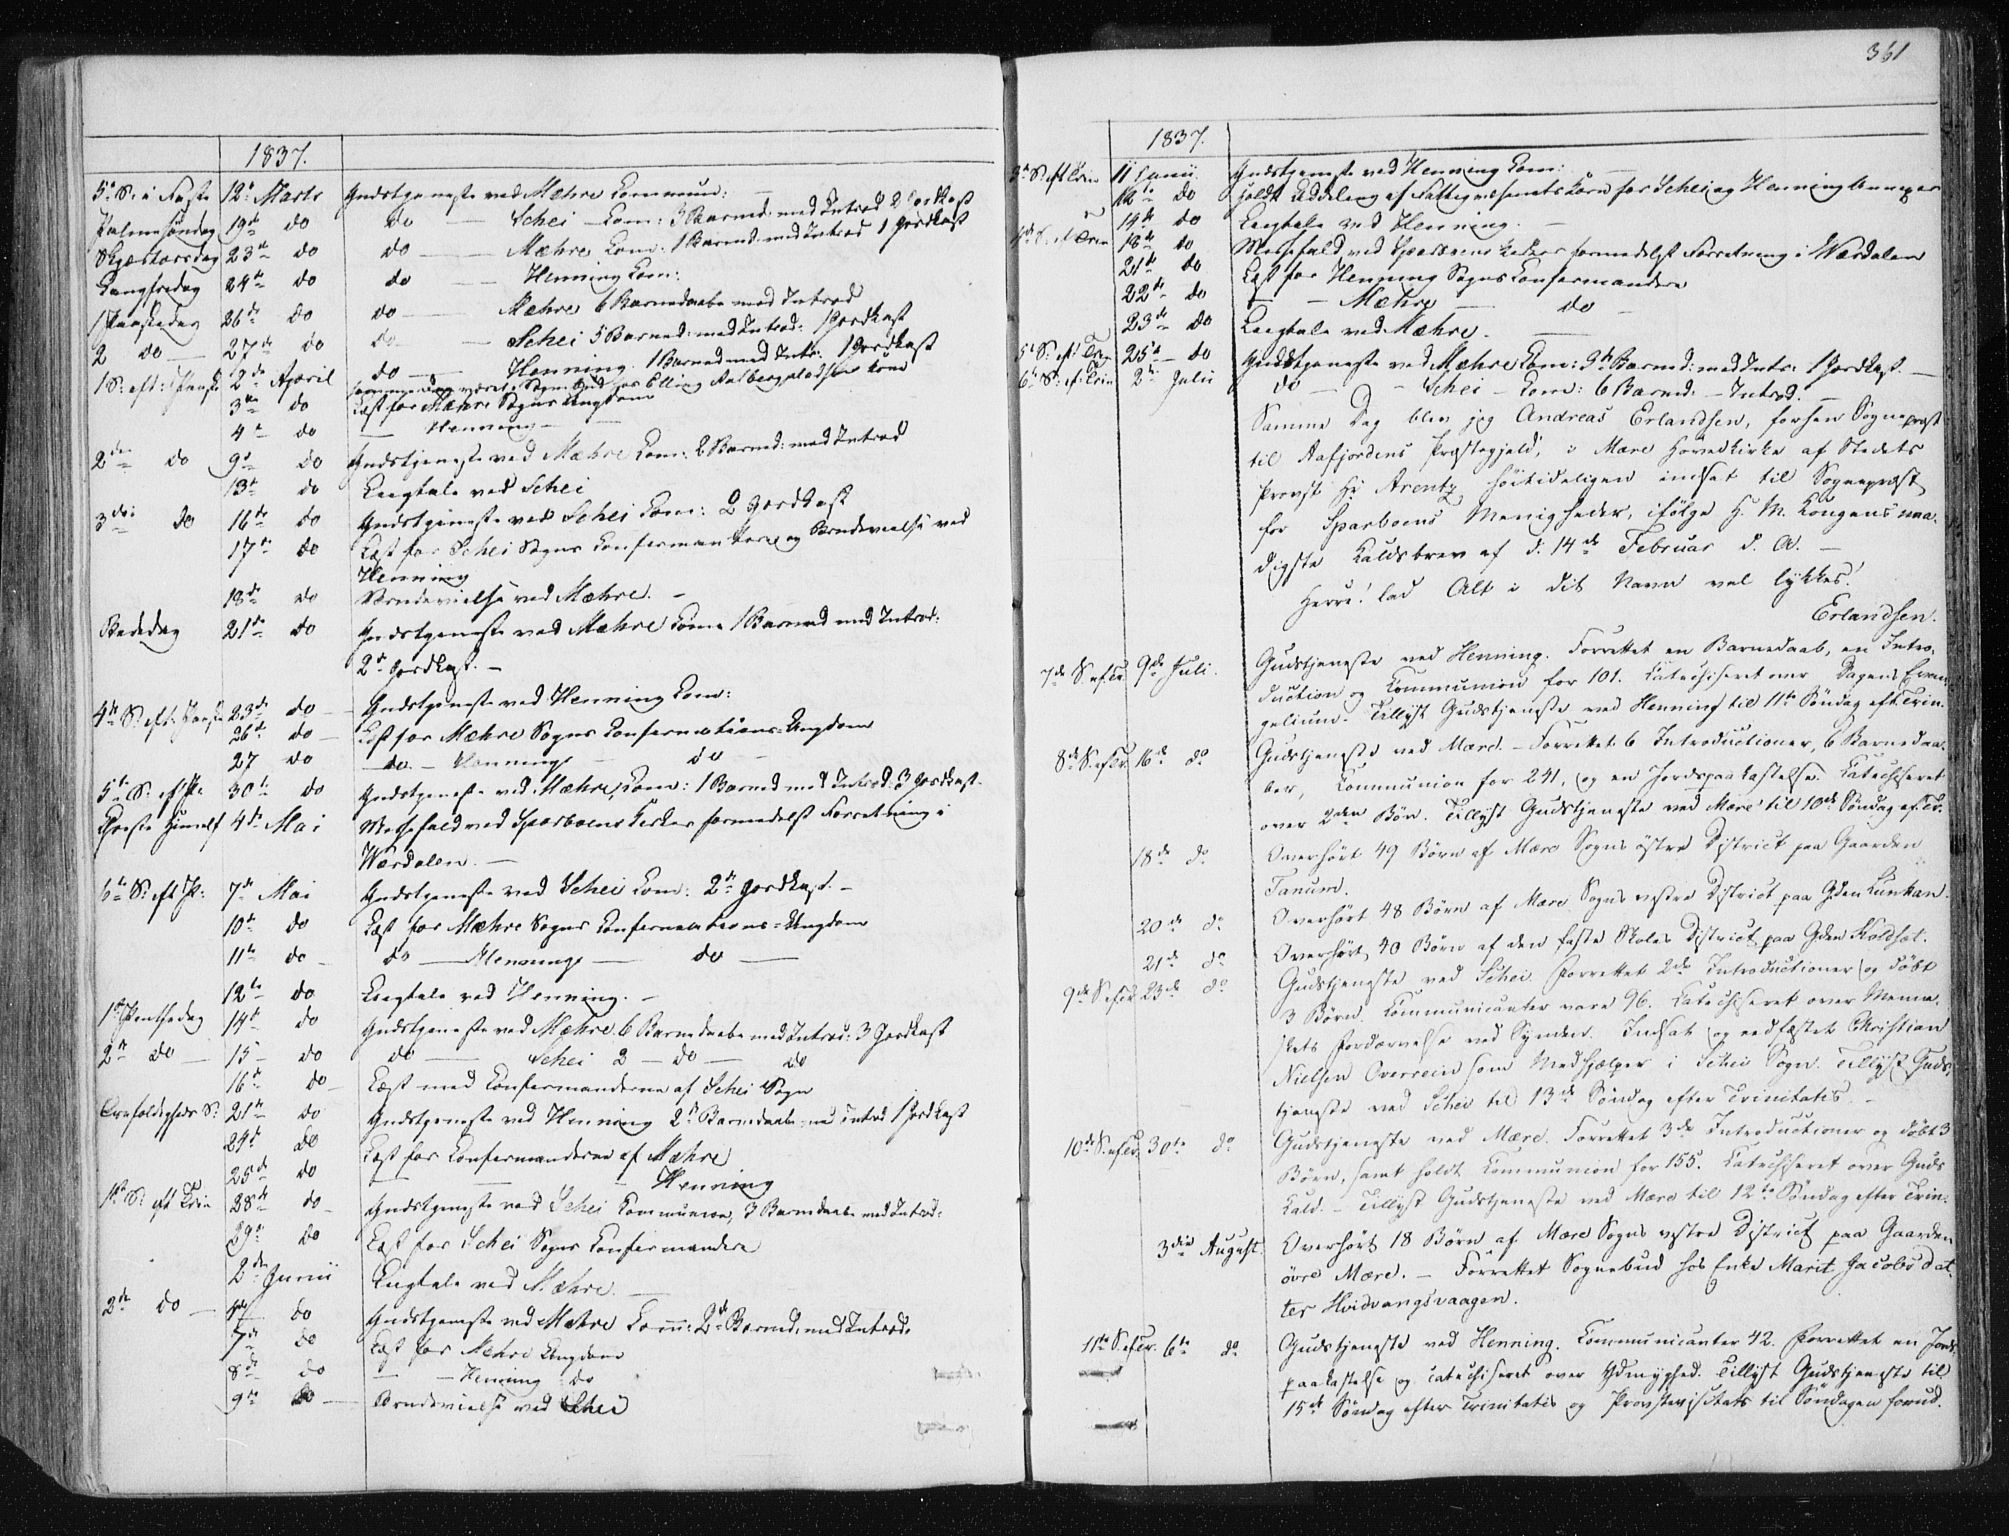 1837.
5te S: i Faste 12te Marts Gudstjeneste ved Mæhre Commun:
Palmesöndag 19de do do — Schei — Com: 3 Barned: med Introd 2 Jordkast
Skjærtorsdag 23de do do — Mæhre Com: 1 Barned: med Introd 1 Jordkast
Langfredag 24de do do — Henning Com:
1 Paaskedag 26de do do — Mæhre 6 Barnedaabe med Introd
2 do — 27de do do — Schei 5 Barned: med Introd: 1 Jordkast
1 S: eft: Paaske 2den April do — Henning. 1 Barned med Intr: 1 Jordkast
Elling Aalbergpladsen
3die do Læst for Mæhre Sogns Ungdom
4de do — Henning —
2den do 9de do Gudstjeneste ved Mæhre Com: 2 Barned: med Introd
13de do Liigtale ved Schei
3die do 16de do Gudstjeneste ved Schei Com: 2 Jordkast
17de do Læst for Schei Sogns Confermandere og Brudevielse ved
Henning
18de do Brudevielse ved Mæhre. —
Bededag 21de do Gudstjeneste ved Mæhre Com 1 Barned med Introd:
2de Jordkast. —
4de S: eft: Paaske 23de do — Gudstjeneste ved Henning Com:
26de do — Læst for Mæhre Sogns Confermations-Ungdom
27 do — do — Hennings — do —
5te S: eft Pa 30te do Gudstjeneste ved Mæhre, Com: 1 Barned med Introd: 3 Jordkast
Christi Himelf 4de Mai Messefald ved Sparboens Kirker formedelst Forretning i
Wærdalen. —
6te S: eft P: 7de Mai Gudstjeneste ved Schei Com: 2de Jordkast. —
10de do Læst for Mæhre Sogns Confermations-Ungdom
11te do — do — Hennings — do —
12te do Liigtale ved Henning. —
1ste Pintsedag 14de do Gudstjeneste ved Mæhre. 6 Barnedaabe med Introd: 3 Jordkast
2den do — 15 — do do — Schei 2 — do — do
16de do — Læst med Confermanderne af Schei Sogn
Trefoldigheds S: 21de do Gudstjeneste ved Henning 2de Barnedaabe med Introd 1 Jordkast
24de do Læst for Confermanderne af Mæhre
25de do — — Henning
1ste S: eft Trin 28de do — Gudstjeneste ved Schei Communion, 3 Barnedaabe med Introd:
29de do Læst for Schei Sogns Confermandere
2den Junii Liigtale ved Mæhre. —
2de do — 4de do Gudstjeneste ved Mæhre Com: 2de Barned: med Introd:
7de do Læst for Mæhre Ungdom
8de do — — Henning do
9de do — Brudevielse ved Schei
361
1837.
3de S: eft Trin 11 Junii Gudstjeneste ved Henning Com:
12te do Holdt Uddeling af Fattigvæsenets Korn for Schei og Henning Annexer
14de do Liigtale ved Henning. —
4de S: eft Trin 18de do Messefald ved Sparboens Kirker formedelst Forretning i Wærdalen
21de do Læst for Henning Sogns Confermandere
22de do — — Mæhre — do —
23de do Liigtale ved Mæhre. —
5te S: eft Trin 25de — do Gudstjeneste ved Mæhre Com: 9de Barned: med Intr: 1 Jordkast. —
6te S: eft: Trin 2den Julii do — Schei — Com: 6 Barned: — Introd: —
Samme Dag blev jeg Andreas Erlandsen, forhen Sognepræst
til Aafjordens Præstegjeld, i Mære Hovedkirke af Stedets
Provst Hr Arentz höitideligen indsat til Sognepræst
for Sparboens Menigheder, ifölge H. M. Kongens naa-
digste Kaldsbrev af d. 14de Februar d. A. —
Herre! lad Alt i dit Navn vel lykkes!
Erlandsen.
7de S. ef. Tr. 9de Juli. Gudstjeneste ved Henning. Forrettet en Barnedaab, en Intro-
duction og Communion for 101. Catechiseret over Dagens Evan-
gelium. Tillyst Gudstjeneste ved Henning til 11te Söndag eft. Trin.
8de S. ef. Tr. 16de do Gudstjeneste ved Mære. — Forrettet 6 Introductioner, 6 Barnedaa-
ber, Communion for 241, og en Jordspaakastelse. Catechiseret
over 2den Bön. Tillyst Gudstjeneste ved Mære til 10de Söndag ef. Tr.
18de do Overhört 49 Börn af Mære Sogns östre District paa Gaarden
Tanum.
20de do Overhört 48 Börn af Mære Sogns vestre District paa Gden Lunkan.
21de do Overhört 40 Börn af den faste Skoles District paa Gden Skoldset.
9de S. ef. Tr. 23de do Gudstjeneste ved Schei. Forrettet 2de Introductioner og döbt
3 Börn. Communicanter vare 96. Catechiseret over Menne-
skets Fordærvelse ved Synden. Indsat og eedfæstet Christian
Nielsen Overrein som Medhjælper i Schei Sogn. Tillyst Guds-
tjeneste ved Schei til 13de Söndag efter Trinitatis. —
10de S. ef. Tr. 30te do Gudstjeneste ved Mære. Forrettet 3de Introductioner og döbt 3
Börn, samt holdt Communion for 155. Catechiseret over Guds
Kald. — Tillyst Gudstjeneste ved Mære til 12te Söndag efter Trin.
3die August. Overhört 18 Börn af Mære Sogns vestre District paa Gaarden
övre Mære. — Forrettet Sognebud hos Enke Marit Jacobsdat-
ter Hvidvangsvaagen.
11te S. ef. Tr. 6te do Gudstjeneste ved Henning. Communicanter 42. Forrettet en Jords-
paakastelse og catechiseret over Ydmyghed. Tillyst Gudstjeneste til
15de Söndag efter Trinitatis og Provstevisitats til Söndagen forud.